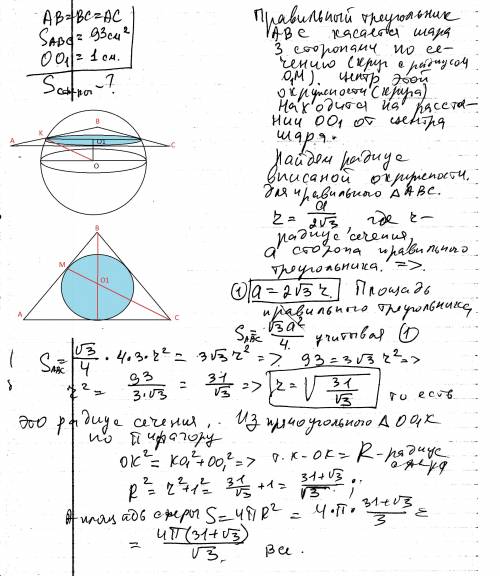 AB=BC=AC
S_ABC = 93 см²
OO₁ = 1 см.
S сферы - ?
Правильный треугольник
ABC касается шара
3 сторонами по се-
чению (круг с радиусом
O₁M). Центр этой
окружности (круга)
находится на расстоя-
нии OO₁ от центра
шара.
Найдем радиус
вписаной окружности
для правильного ΔABC.
r = a/2√3 где r-
радиус сечения,
a сторона правильного
треугольника. =>
① a = 2√3 r. Площадь
правильного треугольника
S_ABC = √3a²/4 учитывая ①
B
K
O1
A
C
O
B
M
O1
A
C
S_ABC = √3/4 · 4·3·r² = 3√3 r² => 93 = 3√3 r² =>
r² = 93/3√3 = 31/√3 => r = √(31/√3) то есть
это радиус сечения. Из прямоугольного ΔOO₁K
по Пифагору
OK² = KO₁² + OO₁² => т.к OK = R - радиус
R² = r² + 1² = 31/√3 + 1 = (31+√3)/√3.
Площадь сферы S = 4πR² = 4·π· (31+√3)/3 =
= 4π(31+√3)/√3. Все.